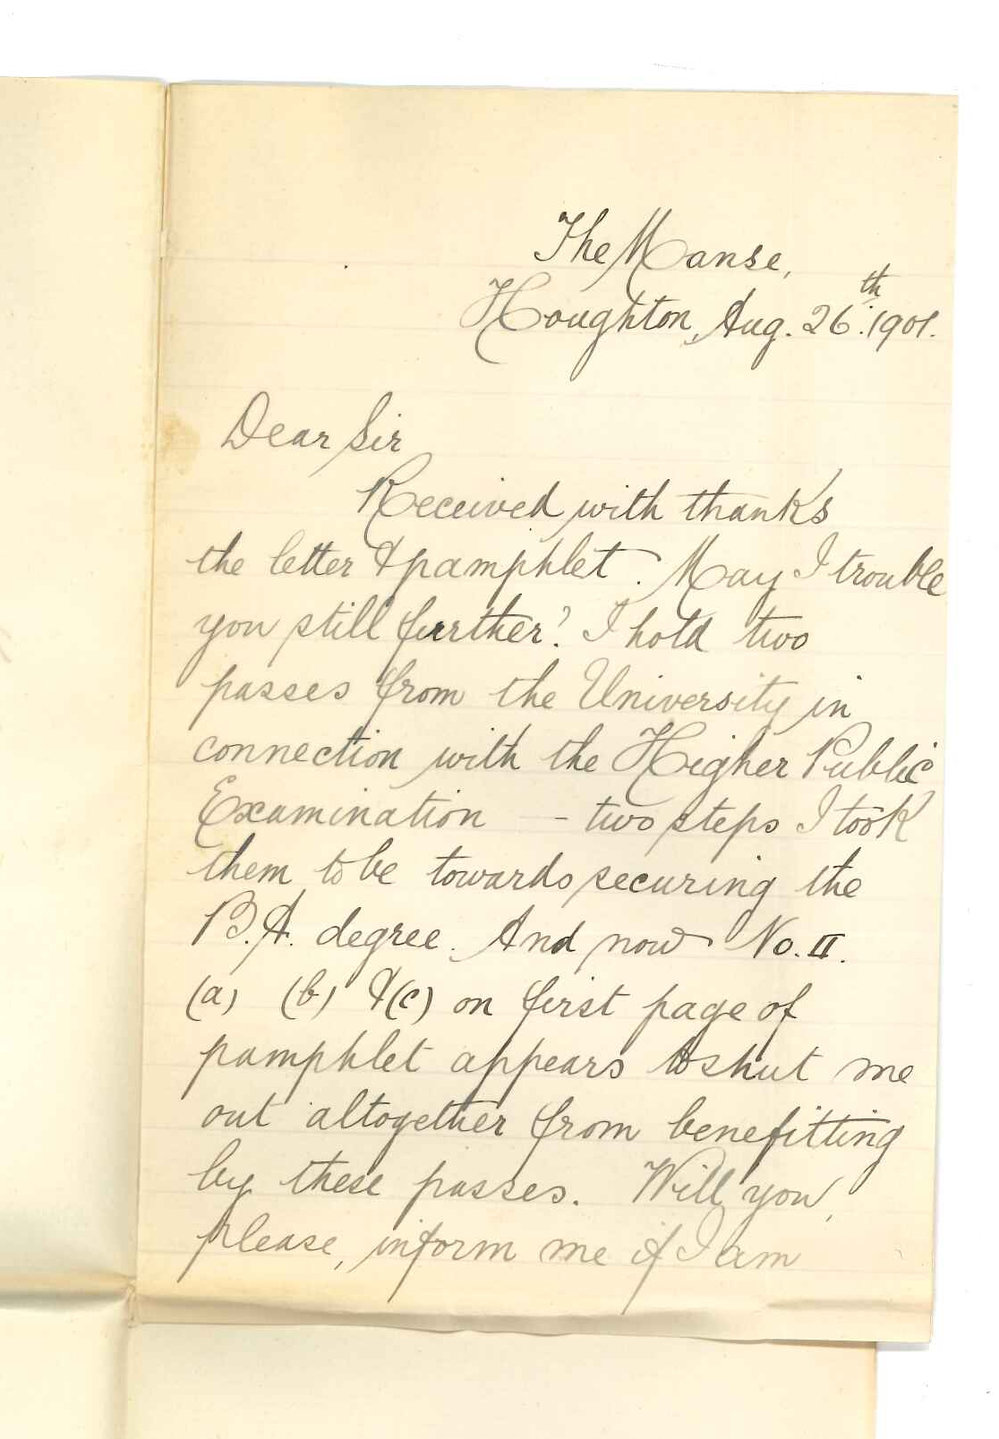 The Manse,
Houghton, Aug. 26th. 1901.
Dear Sir
Received with thanks
the letter & pamphlet. May I trouble
you still further? I hold two
passes from the University in
connection with the Higher Public
Examination - two steps I took
them to be towards securing the
B.A. degree. And now No. II.
(a) (b) & (c) on first page of
pamphlet appears to shut me
out altogether from benefitting
by these passes. Will you,
please, inform me if I am